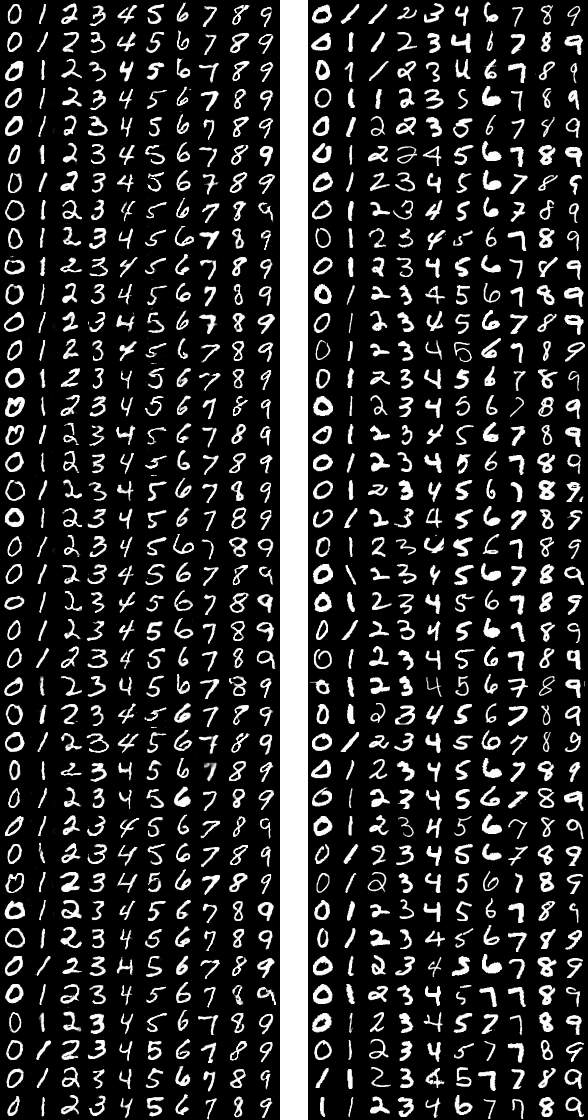 0 1 2 3 4 5 6 7 8 9
0 1 2 3 4 5 6 7 8 9
0 1 2 3 4 5 6 7 8 9
0 1 2 3 4 5 6 7 8 9
0 1 2 3 4 5 6 7 8 9
0 1 2 3 4 5 6 7 8 9
0 1 2 3 4 5 6 7 8 9
0 1 2 3 4 5 6 7 8 9
0 1 2 3 4 5 6 7 8 9
0 1 2 3 4 5 6 7 8 9
0 1 2 3 4 5 6 7 8 9
0 1 2 3 4 5 6 7 8 9
0 1 2 3 4 5 6 7 8 9
0 1 2 3 4 5 6 7 8 9
0 1 2 3 4 5 6 7 8 9
0 1 2 3 4 5 6 7 8 9
0 1 2 3 4 5 6 7 8 9
0 1 2 3 4 5 6 7 8 9
0 1 2 3 4 5 6 7 8 9
0 1 2 3 4 5 6 7 8 9
0 1 2 3 4 5 6 7 8 9
0 1 2 3 4 5 6 7 8 9
0 1 2 3 4 5 6 7 8 9
0 1 2 3 4 5 6 7 8 9
0 1 2 3 4 5 6 7 8 9
0 1 2 3 4 5 6 7 8 9
0 1 2 3 4 5 6 7 8 9
0 1 2 3 4 5 6 7 8 9
0 1 2 3 4 5 6 7 8 9
0 1 2 3 4 5 6 7 8 9
0 1 2 3 4 5 6 7 8 9
0 1 2 3 4 5 6 7 8 9
0 1 2 3 4 5 6 7 8 9
0 1 2 3 4 5 6 7 8 9
0 1 2 3 4 5 6 7 8 9
0 1 2 3 4 5 6 7 8 9
0 1 2 3 4 5 6 7 8 9
0 1 2 3 4 5 6 7 8 9
0 1 2 3 4 5 6 7 8 9
0 1 2 3 4 5 6 7 8 9
0 1 1 2 3 4 6 7 8 9
0 1 1 2 3 4 6 7 8 9
0 1 1 2 3 4 6 7 8 9
0 1 1 2 3 5 6 7 8 9
0 1 2 2 3 5 6 7 8 9
0 1 2 2 4 5 6 7 8 9
0 1 2 3 4 5 6 7 8 9
0 1 2 3 4 5 6 7 8 9
0 1 2 3 4 5 6 7 8 9
0 1 2 3 4 5 6 7 8 9
0 1 2 3 4 5 6 7 8 9
0 1 2 3 4 5 6 7 8 9
0 1 2 3 4 5 6 7 8 9
0 1 2 3 4 5 6 7 8 9
0 1 2 3 4 5 6 7 8 9
0 1 2 3 4 5 6 7 8 9
0 1 2 3 4 5 6 7 8 9
0 1 2 3 4 5 6 7 8 9
0 1 2 3 4 5 6 7 8 9
0 1 2 3 4 5 6 7 8 9
0 1 2 3 4 5 6 7 8 9
0 1 2 3 4 5 6 7 8 9
0 1 2 3 4 5 6 7 8 9
0 1 2 3 4 5 6 7 8 9
0 1 2 3 4 5 6 7 8 9
0 1 2 3 4 5 6 7 8 9
0 1 2 3 4 5 6 7 8 9
0 1 2 3 4 5 6 7 8 9
0 1 2 3 4 5 6 7 8 9
0 1 2 3 4 5 6 7 8 9
0 1 2 3 4 5 6 7 8 9
0 1 2 3 4 5 6 7 8 9
0 1 2 3 4 5 6 7 8 9
0 1 2 3 4 5 6 7 8 9
0 1 2 3 4 5 6 7 8 9
0 1 2 3 4 5 7 7 8 9
0 1 2 3 4 5 7 7 8 9
0 1 2 3 4 5 7 7 8 9
1 1 2 3 4 5 7 7 8 9
1 1 2 3 4 6 7 7 8 9